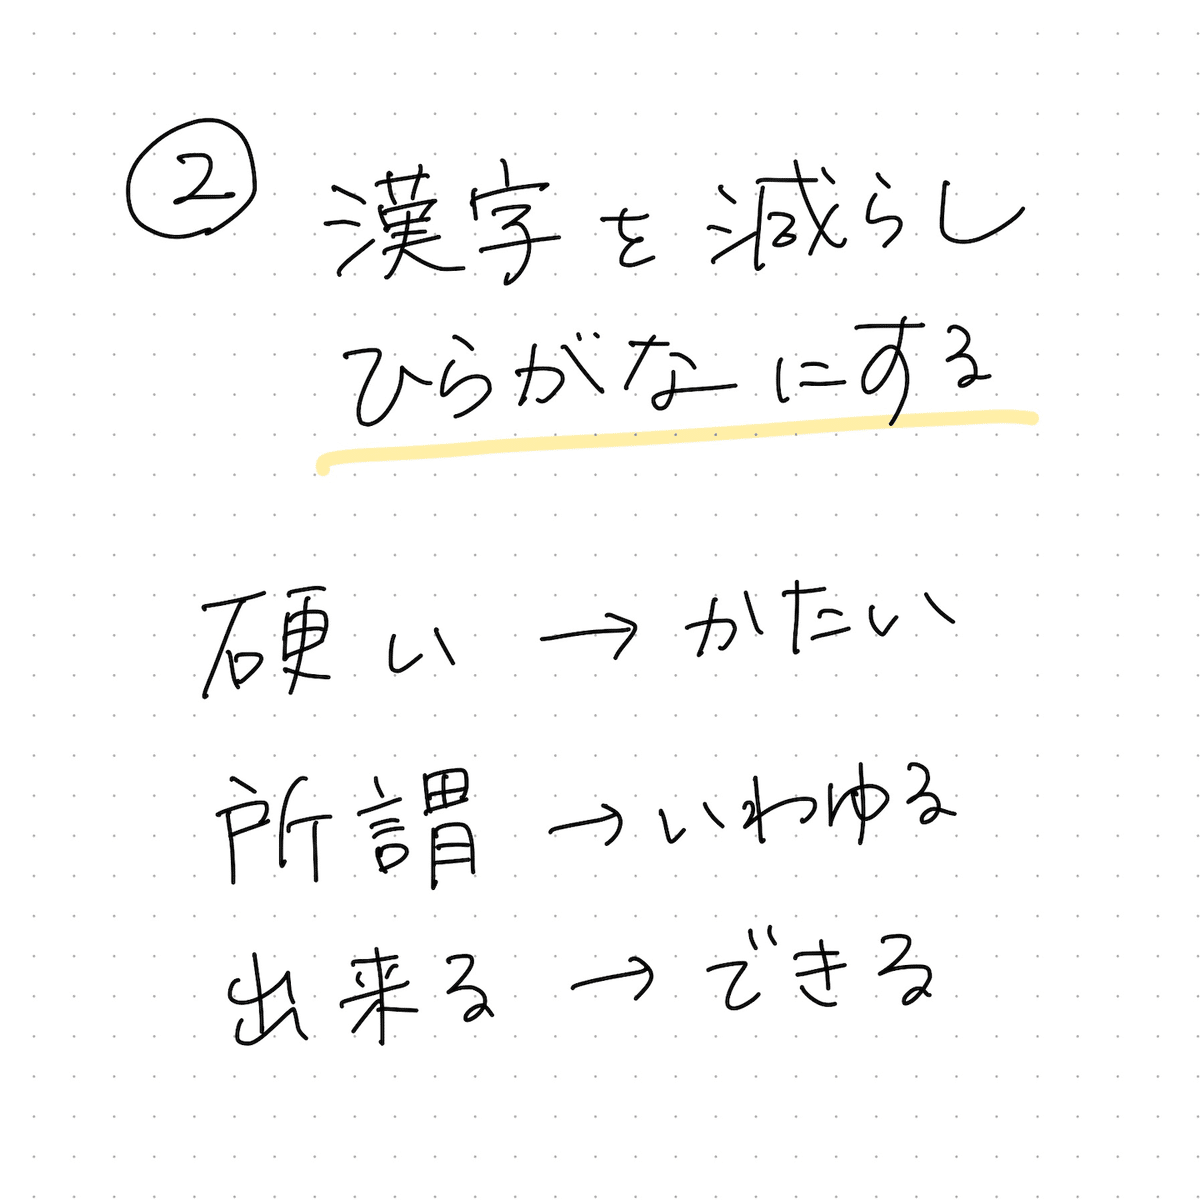 ② 漢字を減らし
ひらがなにする
硬い → かたい
所謂 → いわゆる
出来る → できる